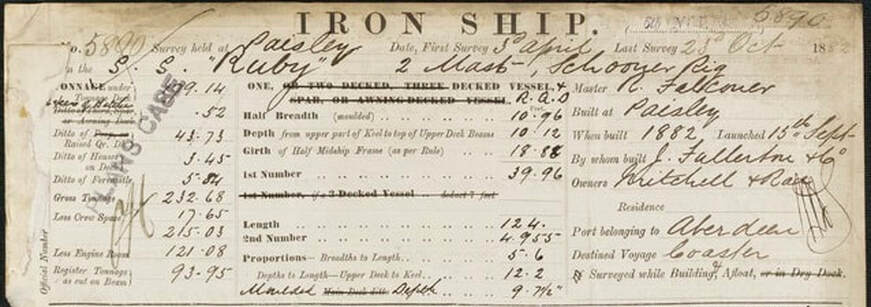 IRON SHIP.
5890
No. 5890 Survey held at Paisley Date, First Survey 3d April Last Survey 23d Oct 1882
on the S. S. "Ruby" 2 Mast, Schooner Rig
TONNAGE under Tonnage Deck 179.14
Ditto of Third, Spar, or Awning Deck .52
Ditto of Poop or Raised Qr. Dk. 43.73
Ditto of Houses on Deck 3.45
Ditto of Forecastle 5.84
Gross Tonnage 232.68
Less Crew Space 17.65
215.03
Less Engine Room 121.08
Register Tonnage as cut on Beam 93.95
Official Number
ONE, OR TWO DECKED, THREE DECKED VESSEL, &
SPAR, OR AWNING DECKED VESSEL. R.Q.D
Half Breadth (moulded) 10.96
Depth from upper part of Keel to top of Upper Deck Beams 10.12
Girth of Half Midship Frame (as per Rule) 18.88
1st Number 39.96
1st Number, if a 3-Decked Vessel deduct 7 feet
Length 124.
2nd Number 4955
Proportions— Breadths to Length 5.6
Depths to Length—Upper Deck to Keel 12.2
Moulded Main Deck ditto Depth 9.7½"
Master R. Falconer
Built at Paisley
When built 1882 Launched 15th Sept
By whom built J. Fullerton & Co
Owners Mitchell & Rae
Residence
Port belonging to Aberdeen
Destined Voyage Coaster
Surveyed while Building, Afloat, or in Dry Dock.